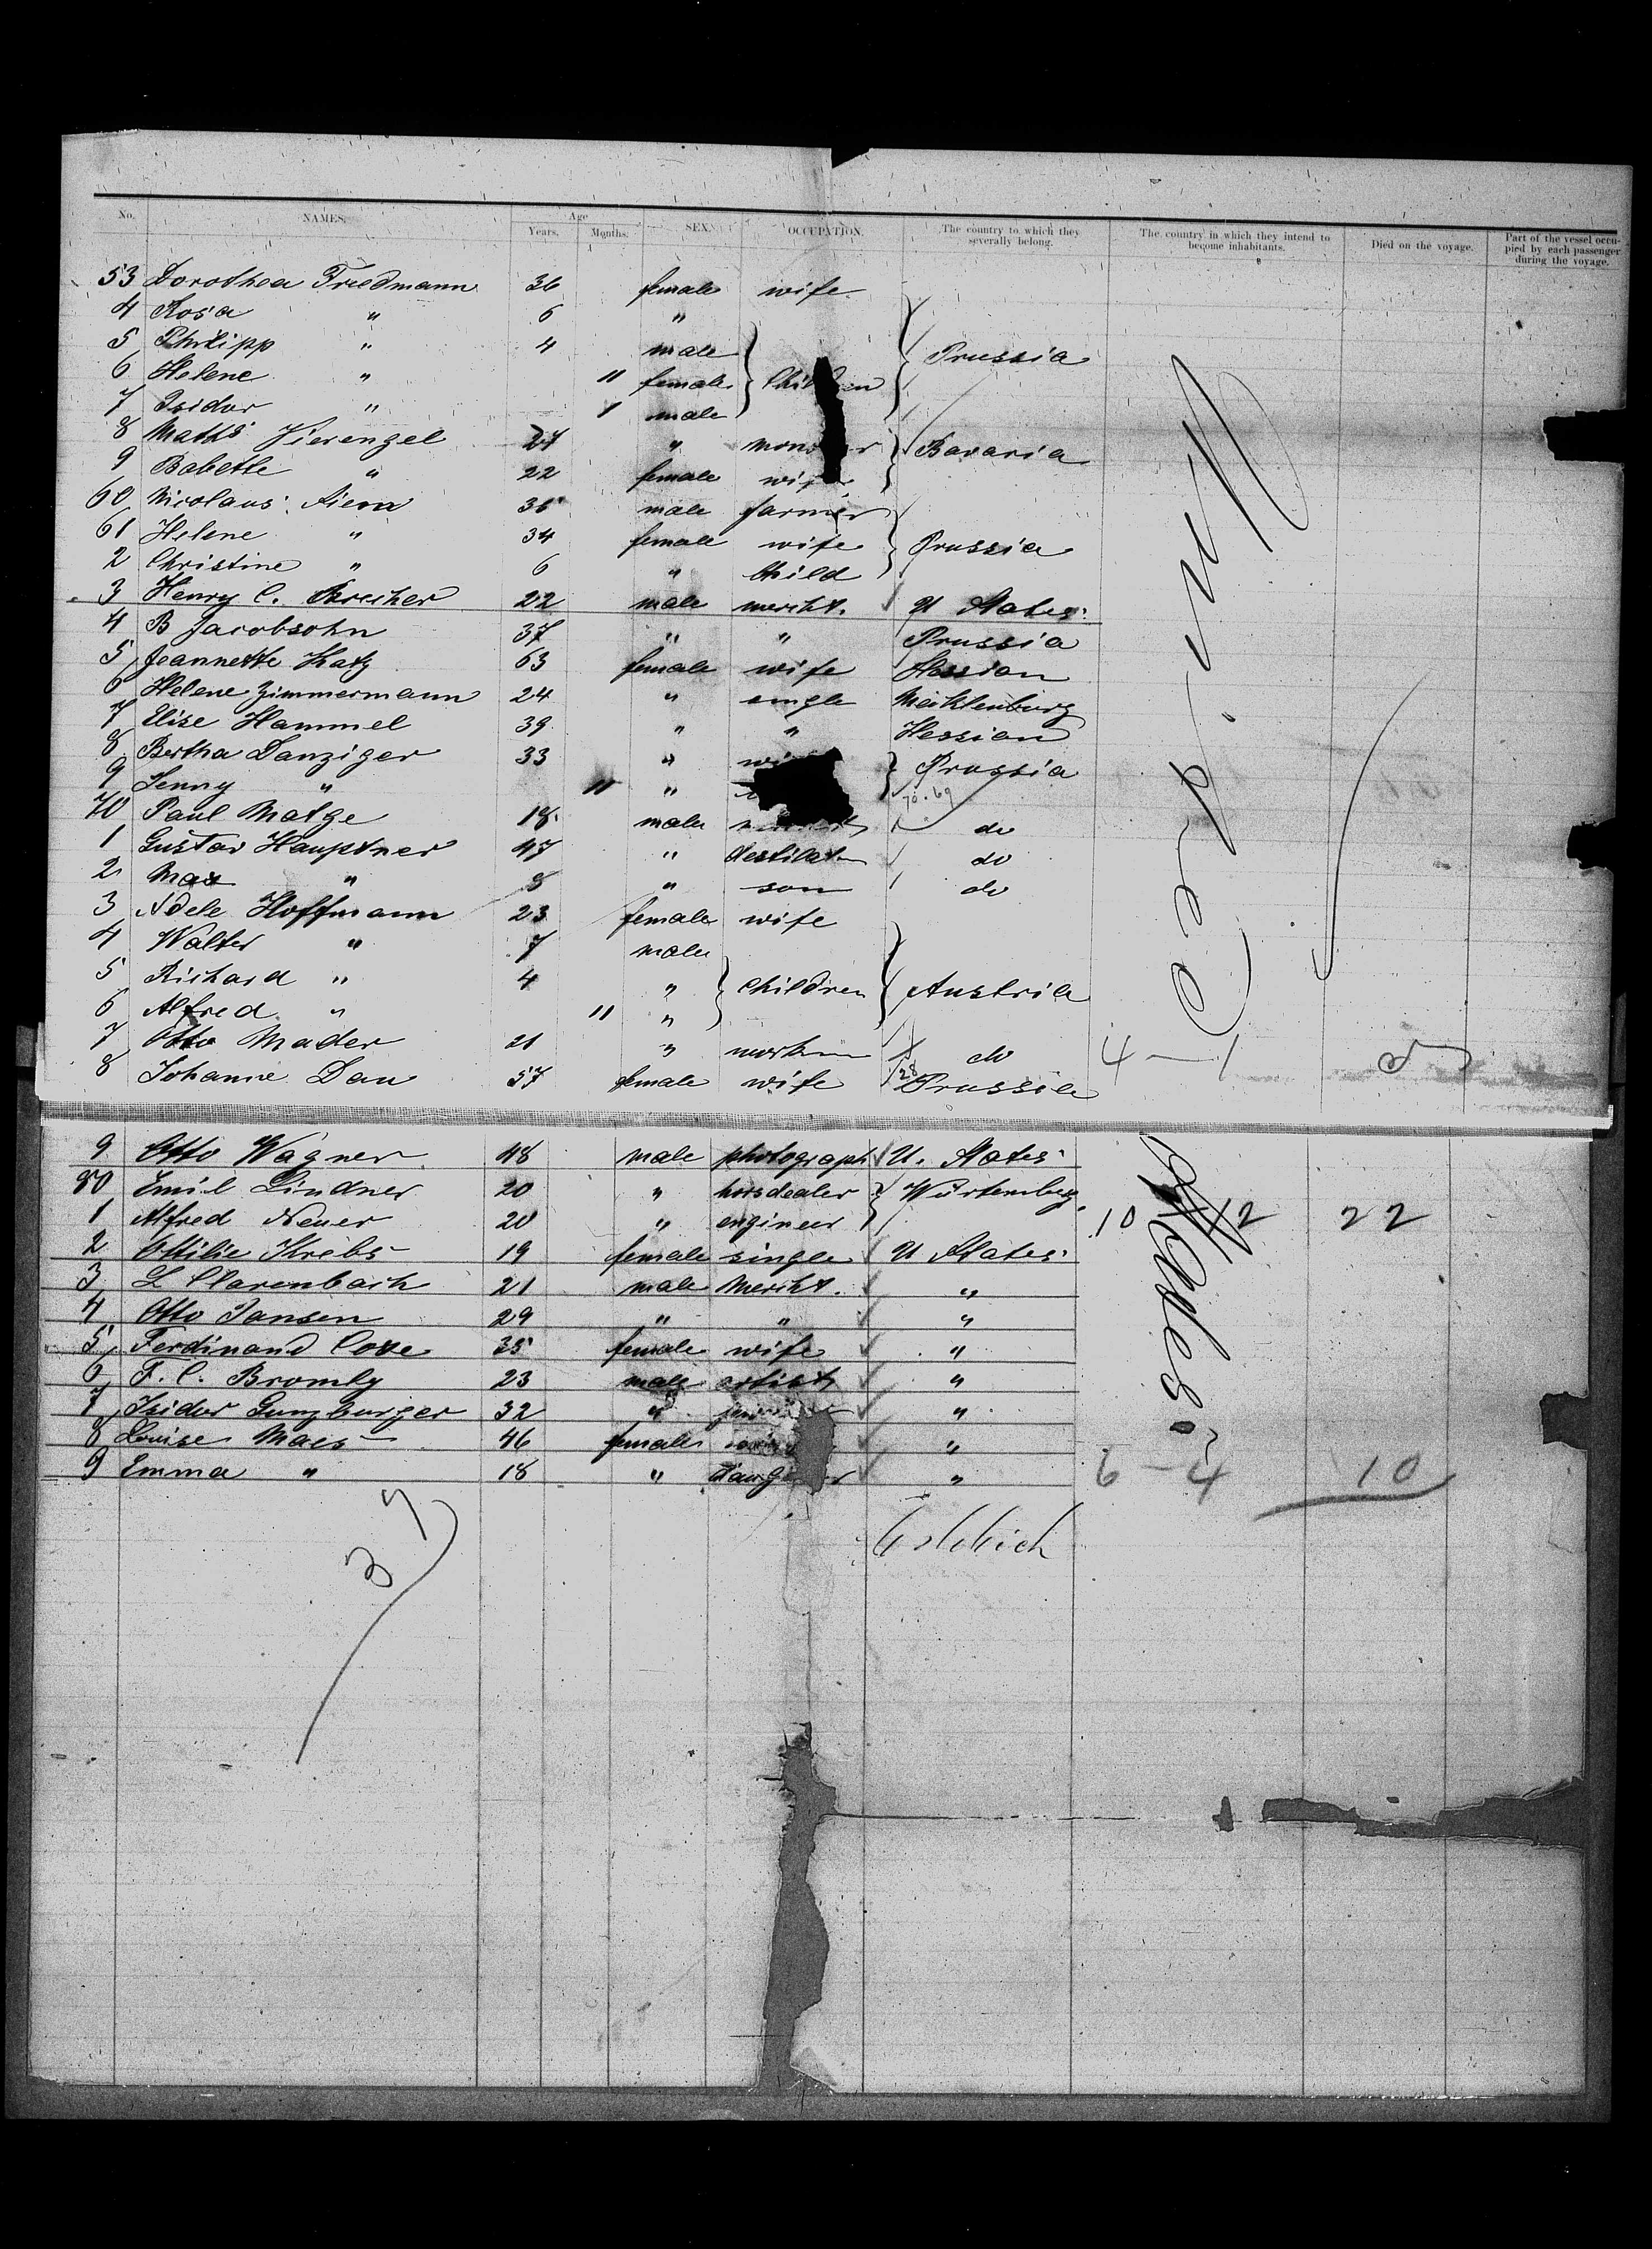 No. NAMES. Age Years. Months. SEX. OCCUPATION. The country to which they severally belong. The country in which they intend to become inhabitants. Died on the voyage. Part of the vessel occupied by each passenger during the voyage.
53 Dorothea Friedmann 36 female wife
4 Rosa " 6 "
5 Philipp " 4 male
6 Helene " 11 female Children Prussia
7 Isidor " 1 male
8 Maths Vierengel 27 " Bavaria
9 Babette " 22 female wife
60 Nicolaus 36 male farmer
61 Helene " 34 female wife Prussia
2 Christine " 6 " Child
3 Henry C. 22 male mercht. U States
4 B Jacobsohn 37 " " Prussia
5 Jeannette Katz 63 female wife Hessian
6 Helene Zimmermann 24 " single Mecklenburg
7 Elise Hammel 39 " " Hessian
8 Bertha Danziger 33 " Prussia
9 Jenny " 11 "
70.69
70 Paul Matge 18 male do
1 Gustav Hauptner 47 " do
2 Max " 8 " son do
3 Adele Hoffmann 23 female wife
4 Walter " 7 male
5 Richard " 4 " Children Austria
6 Alfred " 11 "
7 Otto Mader 21 " do 4 - 1
8 Johanne Dau 57 female wife 28 Prussia
9 Otto Wagner 48 male photograph U. States
80 Emil Lindner 20 " horsdealer Würtemberg
1 Alfred Neuer 20 " engineer 10 12 22
2 Ottilie Krebs 19 female single U States
3 L Clarenbach 21 male Mercht. "
4 Otto Jansen 29 " " "
5 Ferdinand Coxe 35 female wife "
6 F. C. Bromly 23 male artist "
7 Isidor Gunzburger 32 " "
8 Louise Maes 46 female "
9 Emma " 18 " daughter " 6 - 4 10
37